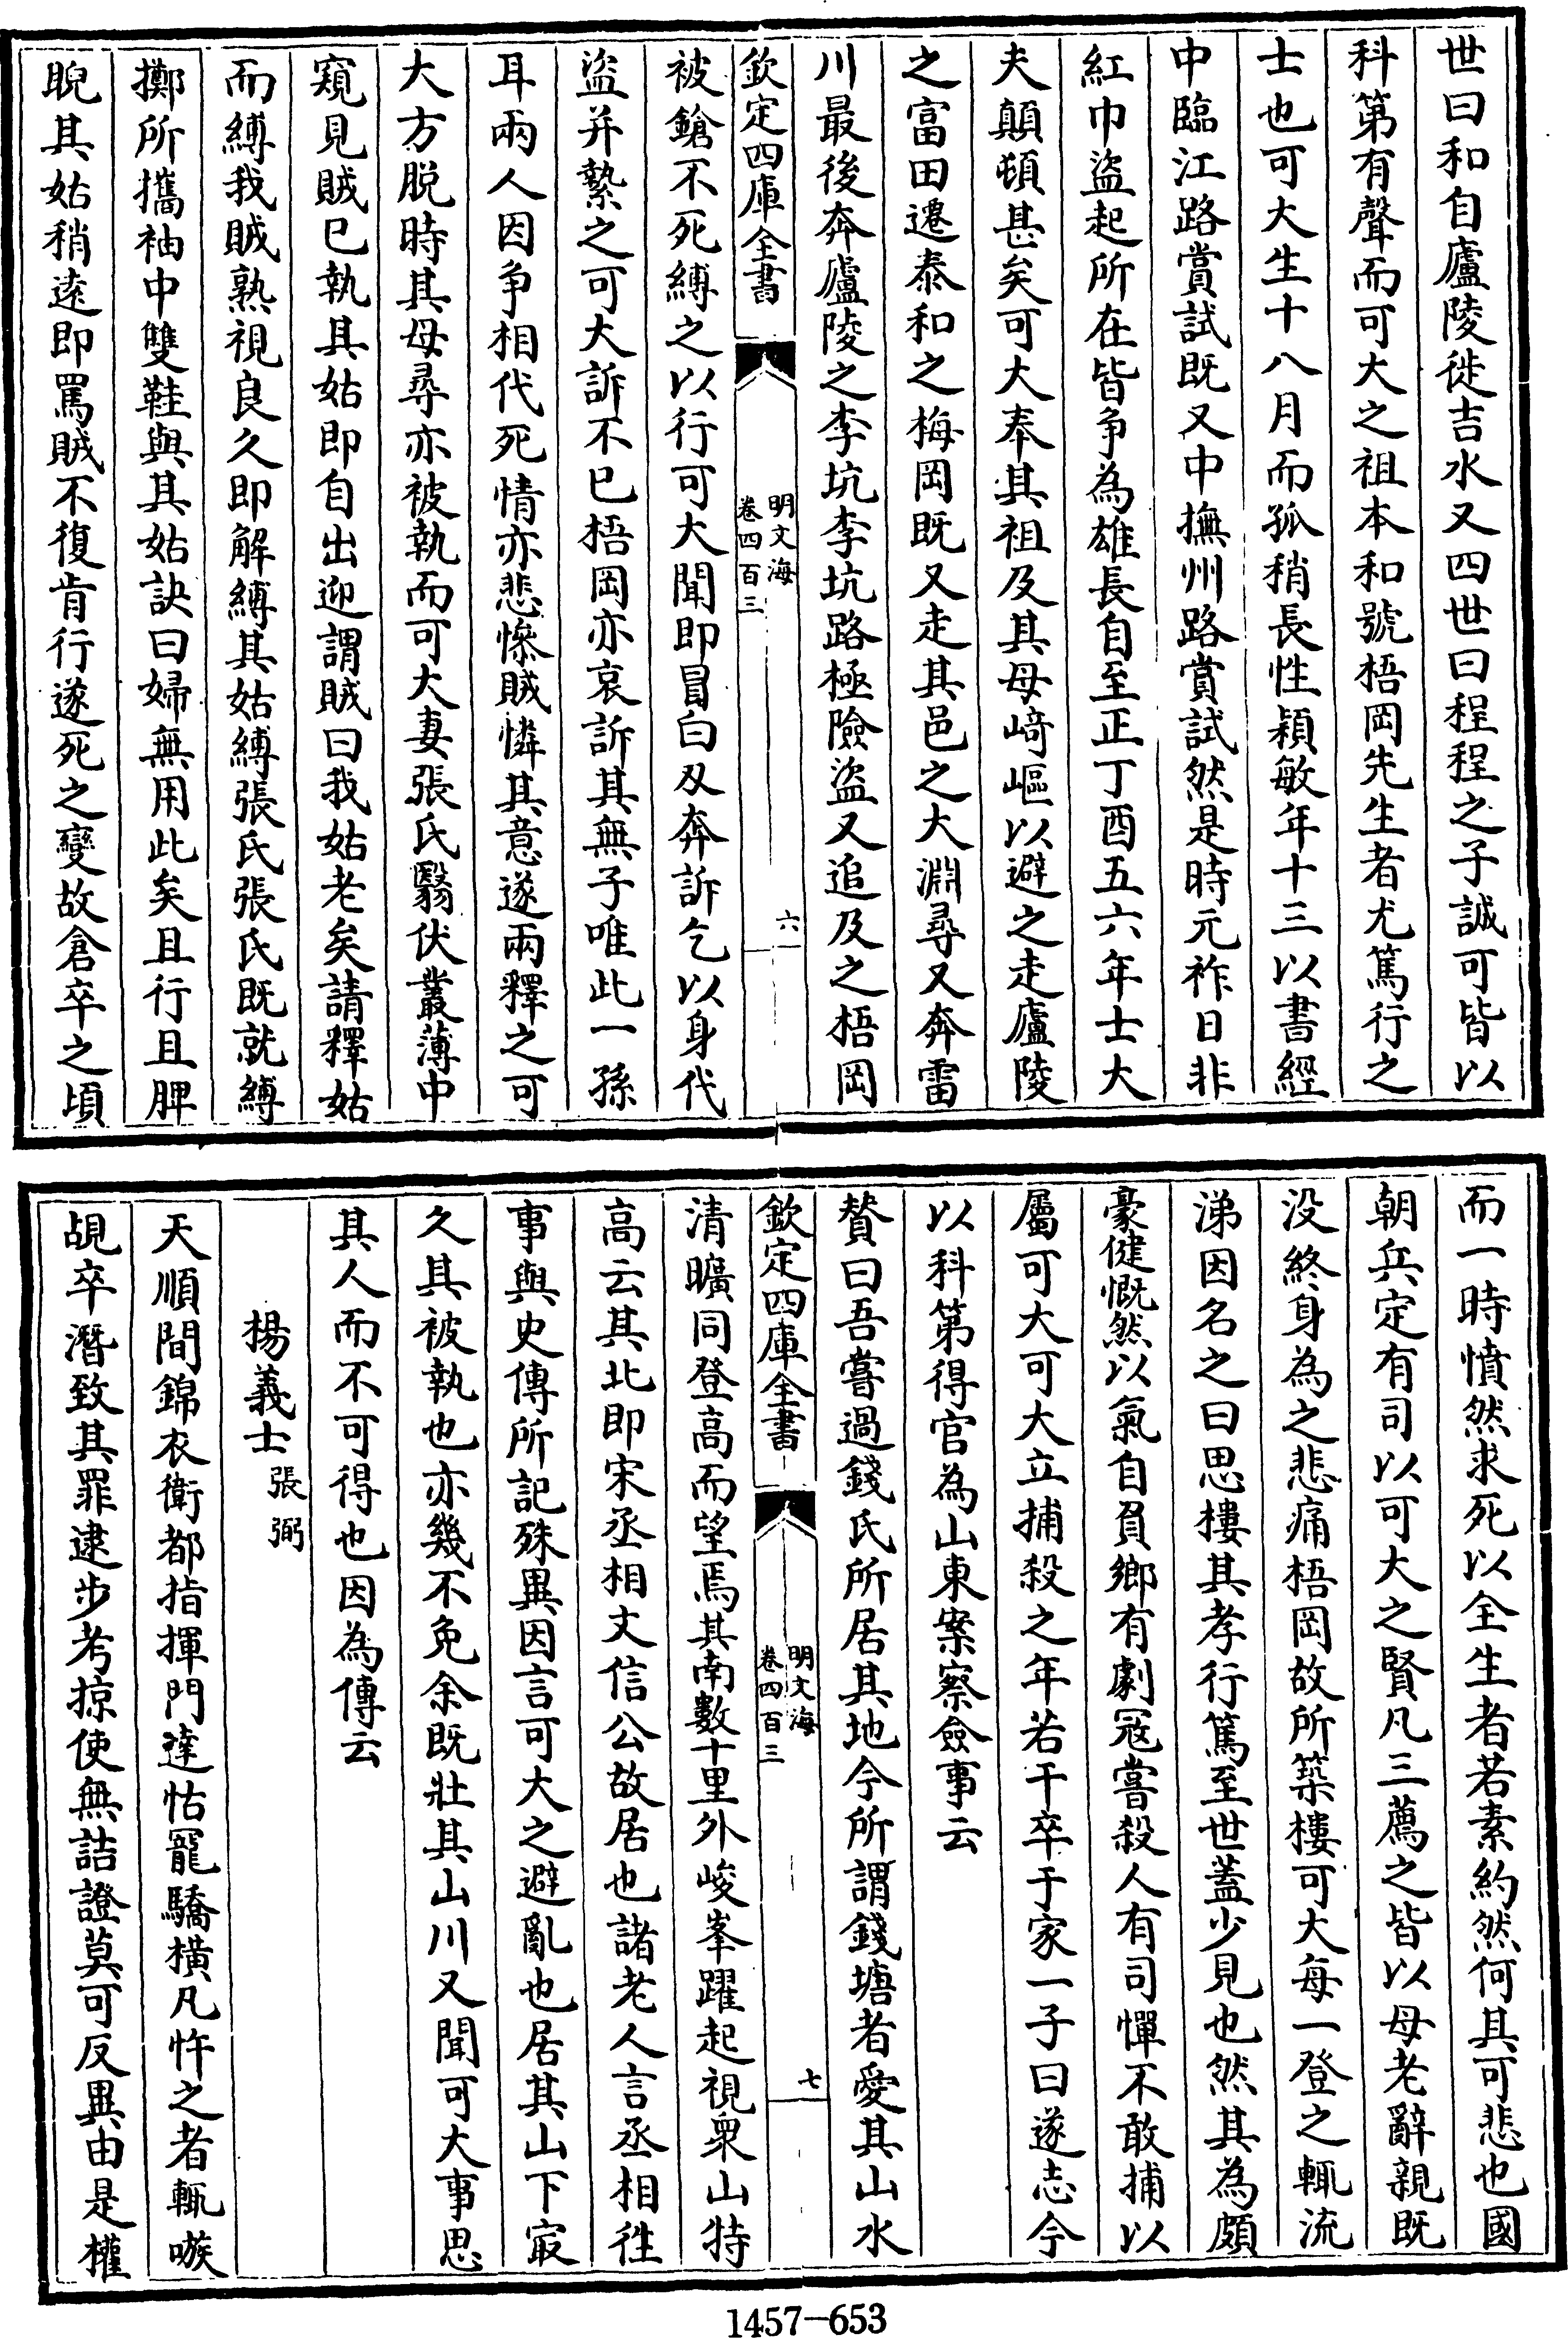 世曰和自廬陵徙吉水又四世曰程程之子誠可皆以
科第有聲而可大之祖本和號梧岡先生者尤篤行之
士也可大生十八月而孤稍長性穎敏年十三以書經
中臨江路賞試既又中撫州路賞試然是時元祚日非
紅巾盜起所在皆争為雄長自至正丁酉五六年士大
夫顛頓甚矣可大奉其祖及其母﨑嶇以避之走廬陵
之富田遷泰和之梅岡既又走其邑之大淵尋又奔雷
川最後奔廬陵之李坑李坑路極險盜又追及之梧岡
欽定四庫全書
明文海
卷四百三
六
被鎗不死縛之以行可大聞即冒白刄奔訴乞以身代
盜并縶之可大訴不已梧岡亦哀訴其無子唯此一孫
耳兩人因争相代死情亦悲慘賊憐其意遂兩釋之可
大方脱時其母尋亦被執而可大妻張氏翳伏叢薄中
窺見賊已執其姑即自出迎謂賊曰我姑老矣請釋姑
而縛我賊熟視良久即解縛其姑縛張氏張氏既就縛
擲所攜袖中雙鞋與其姑訣曰婦無用此矣且行且睥
睨其姑稍遠即罵賊不復肯行遂死之變故倉卒之頃
而一時憤然求死以全生者若素約然何其可悲也國
朝兵定有司以可大之賢凡三薦之皆以母老辭親既
没終身為之悲痛梧岡故所築樓可大每一登之輒流
涕因名之曰思樓其孝行篤至世蓋少見也然其為頗
豪健慨然以氣自負鄉有劇冦嘗殺人有司憚不敢捕以
屬可大可大立捕殺之年若干卒于家一子曰遂志今
以科第得官為山東案察僉事云
賛曰吾嘗過錢氏所居其地今所謂錢塘者愛其山水
欽定四庫全書
明文海
卷四百三
七
清曠同登高而望焉其南數十里外峻峯躍起視衆山特
高云其北即宋丞相文信公故居也諸老人言丞相徃
事與史傳所記殊異因言可大之避亂也居其山下㝡
久其被執也亦幾不免余既壯其山川又聞可大事思
其人而不可得也因為傳云
楊義士張弼
天順間錦衣衛都指揮門達怙寵驕横凡忤之者輒嗾
覘卒潛致其罪逮步考掠使無詰證莫可反異由是權
1457-653